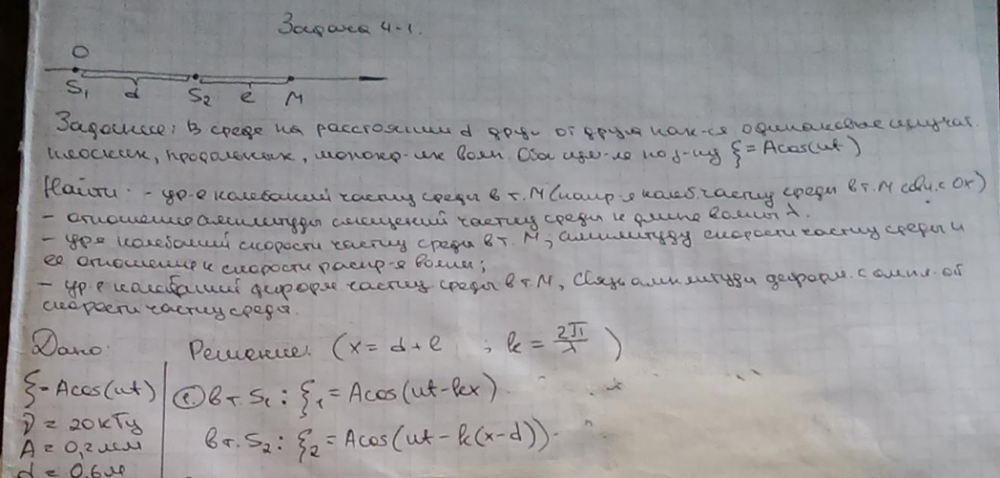 Задача 4-1.
O
S₁ d S₂ l M
Задание: В среде на расстоянии d друг от друга нах-ся одинаковые излучат.
плоских, продольных, монохр-их волн. Оба изл-ля по з-ну ξ = Acos(ωt)
Найти: - ур-е колебаний частиц среды в т. M (напр-я колеб. частиц среды в т. M совп. с OX)
- отношение амплитуды смещений частиц среды к длине волны λ.
- ур-я колебаний скорости частиц среды в т. M; амплитуду скорости частиц среды и
её отношение к скорости распр-я волны;
- ур-е колебаний деформ. частиц среды в т M, связь амплитуды деформ. с ампл-ой
скорости частиц среды.
Дано: Решение: (x = d + l ; k = 2π/λ)
ξ = Acos(ωt) ① в т. S₁: ξ₁ = Acos(ωt - kx)
ν = 20 кГц
в т. S₂: ξ₂ = Acos(ωt - k(x-d)).
A = 0,2 мм
d = 0,6 м